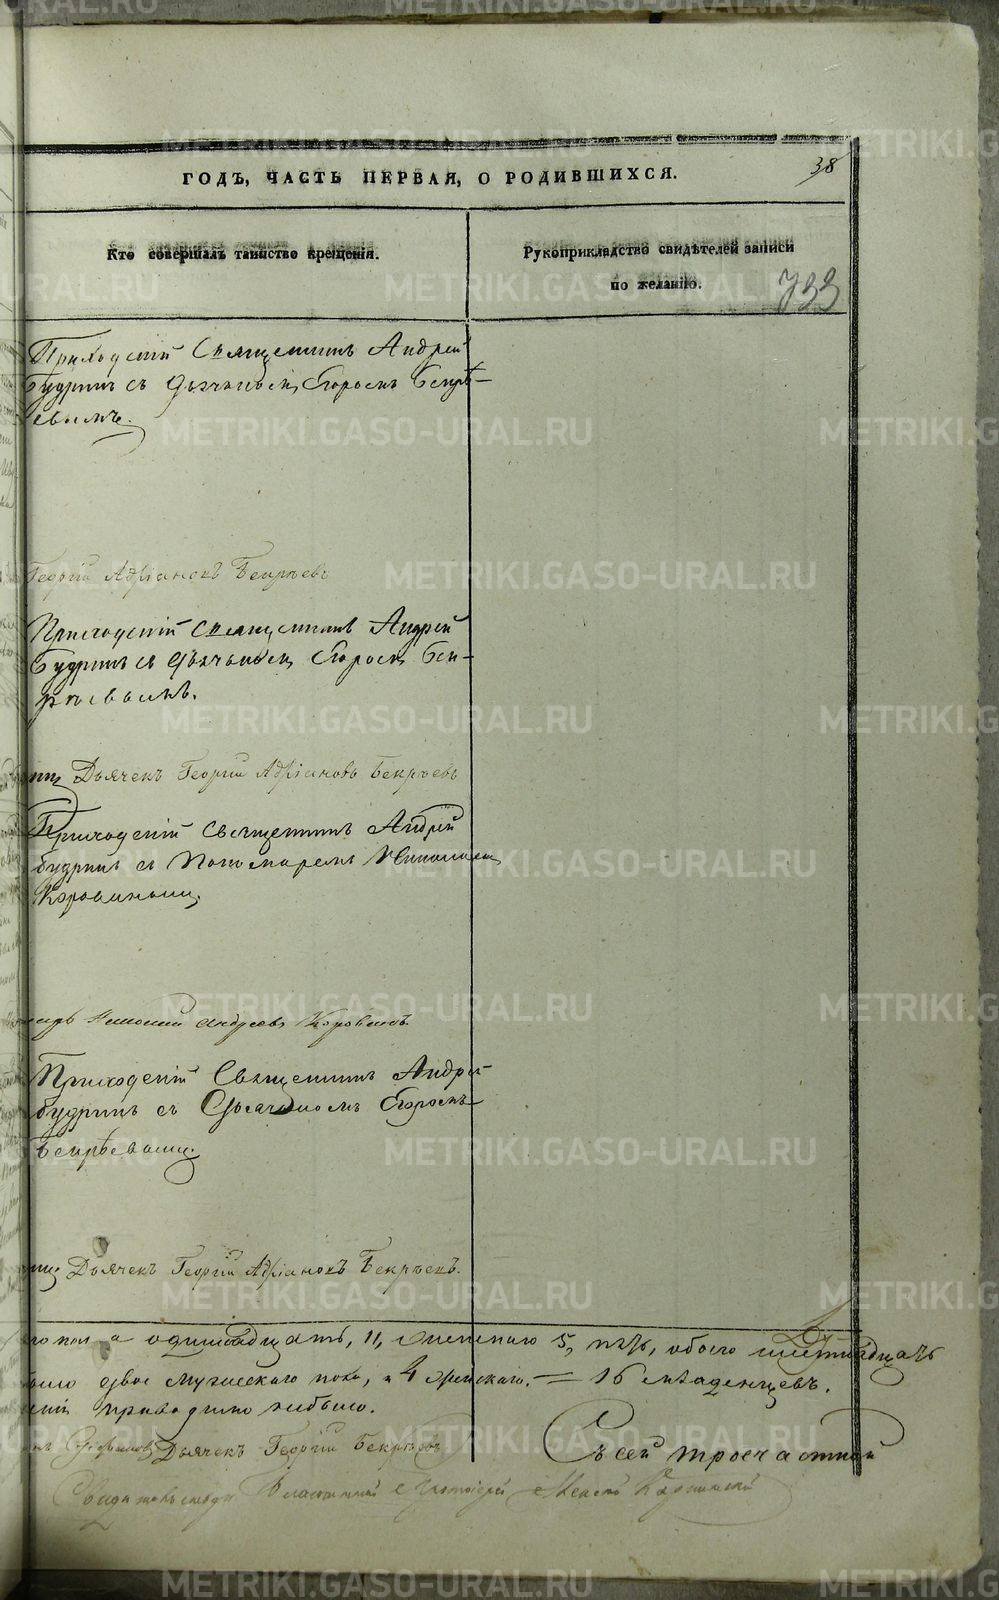 38
ГОДЪ, ЧАСТЬ ПЕРВАЯ, О РОДИВШИХСЯ.
Кто совершалъ таинство крещенія.
Рукоприкладство свидѣтелей записи
по желанію.
733
Приходскій Священникъ Андрей
Будринъ съ Дьячкомъ Егоромъ Бекрѣ-
евымъ.
Георгій Адріановъ Бекрѣевъ
Приходскій Священникъ Андрей
Будринъ съ Дьячкомъ Егоромъ Бек-
рѣевымъ.
Дьячекъ Георгій Адріановъ Бекрѣевъ
Приходскій Священникъ Андрей
Будринъ съ Пономаремъ Николаемъ
Коровинымъ.
Николай Андреевъ Коровинъ
Приходскій Священникъ Андрей
Будринъ съ Дьячкомъ Егоромъ
Бекрѣевымъ.
Дьячекъ Георгій Адріановъ Бекрѣевъ.
пола одинадцать, 11, женскаго 5, пять, обоего шестнадцать
двое мужескаго пола, и 4 женскаго. = 16 младенцевъ.
приводимо небыло.
Дьячекъ Георгій Бекрѣевъ
Къ сей троечастной
METRIKI.GASO-URAL.RU